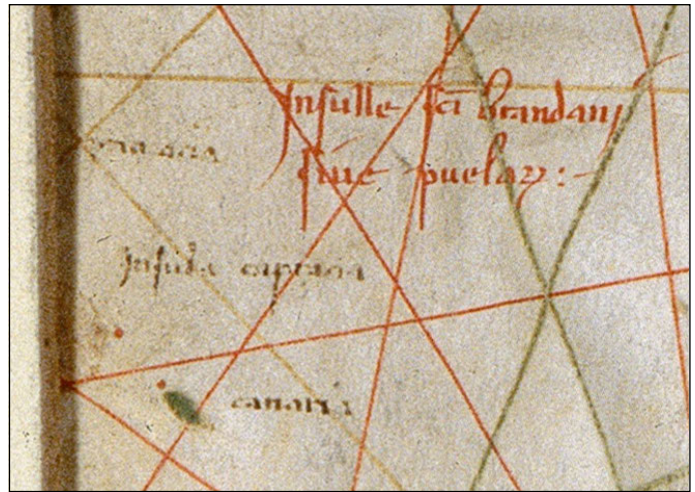 Insulle sci brandani
siue puelarz :-
Insula capraria
canaria